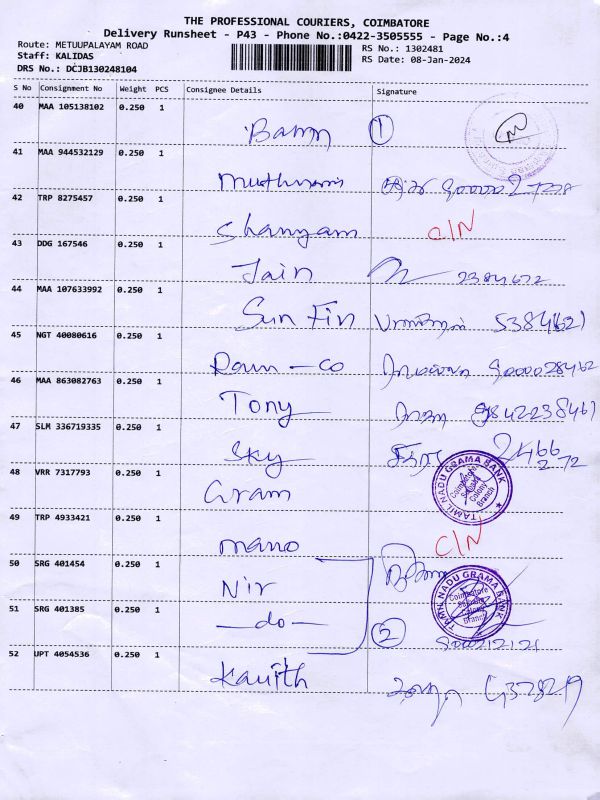 THE PROFESSIONAL COURIERS, COIMBATORE
Delivery Runsheet - P43 - Phone No.:0422-3505555 - Page No.:4
Route: METUUPALAYAM ROAD
RS No.: 1302481
Staff: KALIDAS
RS Date: 08-Jan-2024
DRS No.: DCJB130248104
S No Consignment No Weight PCS Consignee Details Signature
40 MAA 105138102 0.250 1
1
41 MAA 944532129 0.250 1
42 TRP 8275457 0.250 1
C/N
43 DDG 167546 0.250 1
Jain 2384672
44 MAA 107633992 0.250 1
Sun Fin
45 NGT 40080616 0.250 1
9000028462
46 MAA 863082763 0.250 1
Tony 9842238461
47 SLM 336719335 0.250 1
Sky 2466
272
48 VRR 7317793 0.250 1
Gram
TAMIL NADU GRAMA BANK
Coimbatore
Colony
Branch
49 TRP 4933421 0.250 1
mano C/N
50 SRG 401454 0.250 1
Nir
TAMIL NADU GRAMA BANK
Coimbatore
Branch
51 SRG 401385 0.250 1
-do- 2
52 UPT 4054536 0.250 1